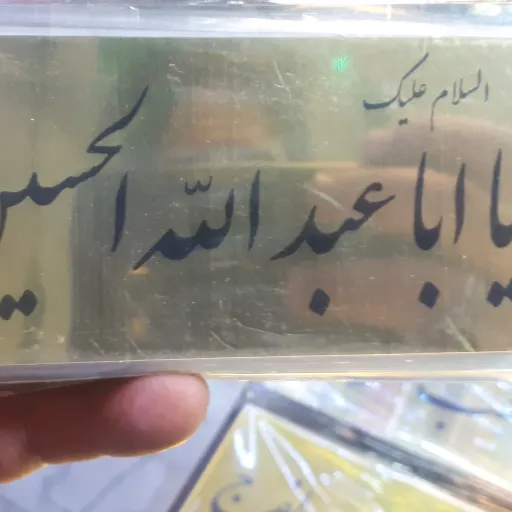 السلام علیک
یا ابا عبد الله الحسین